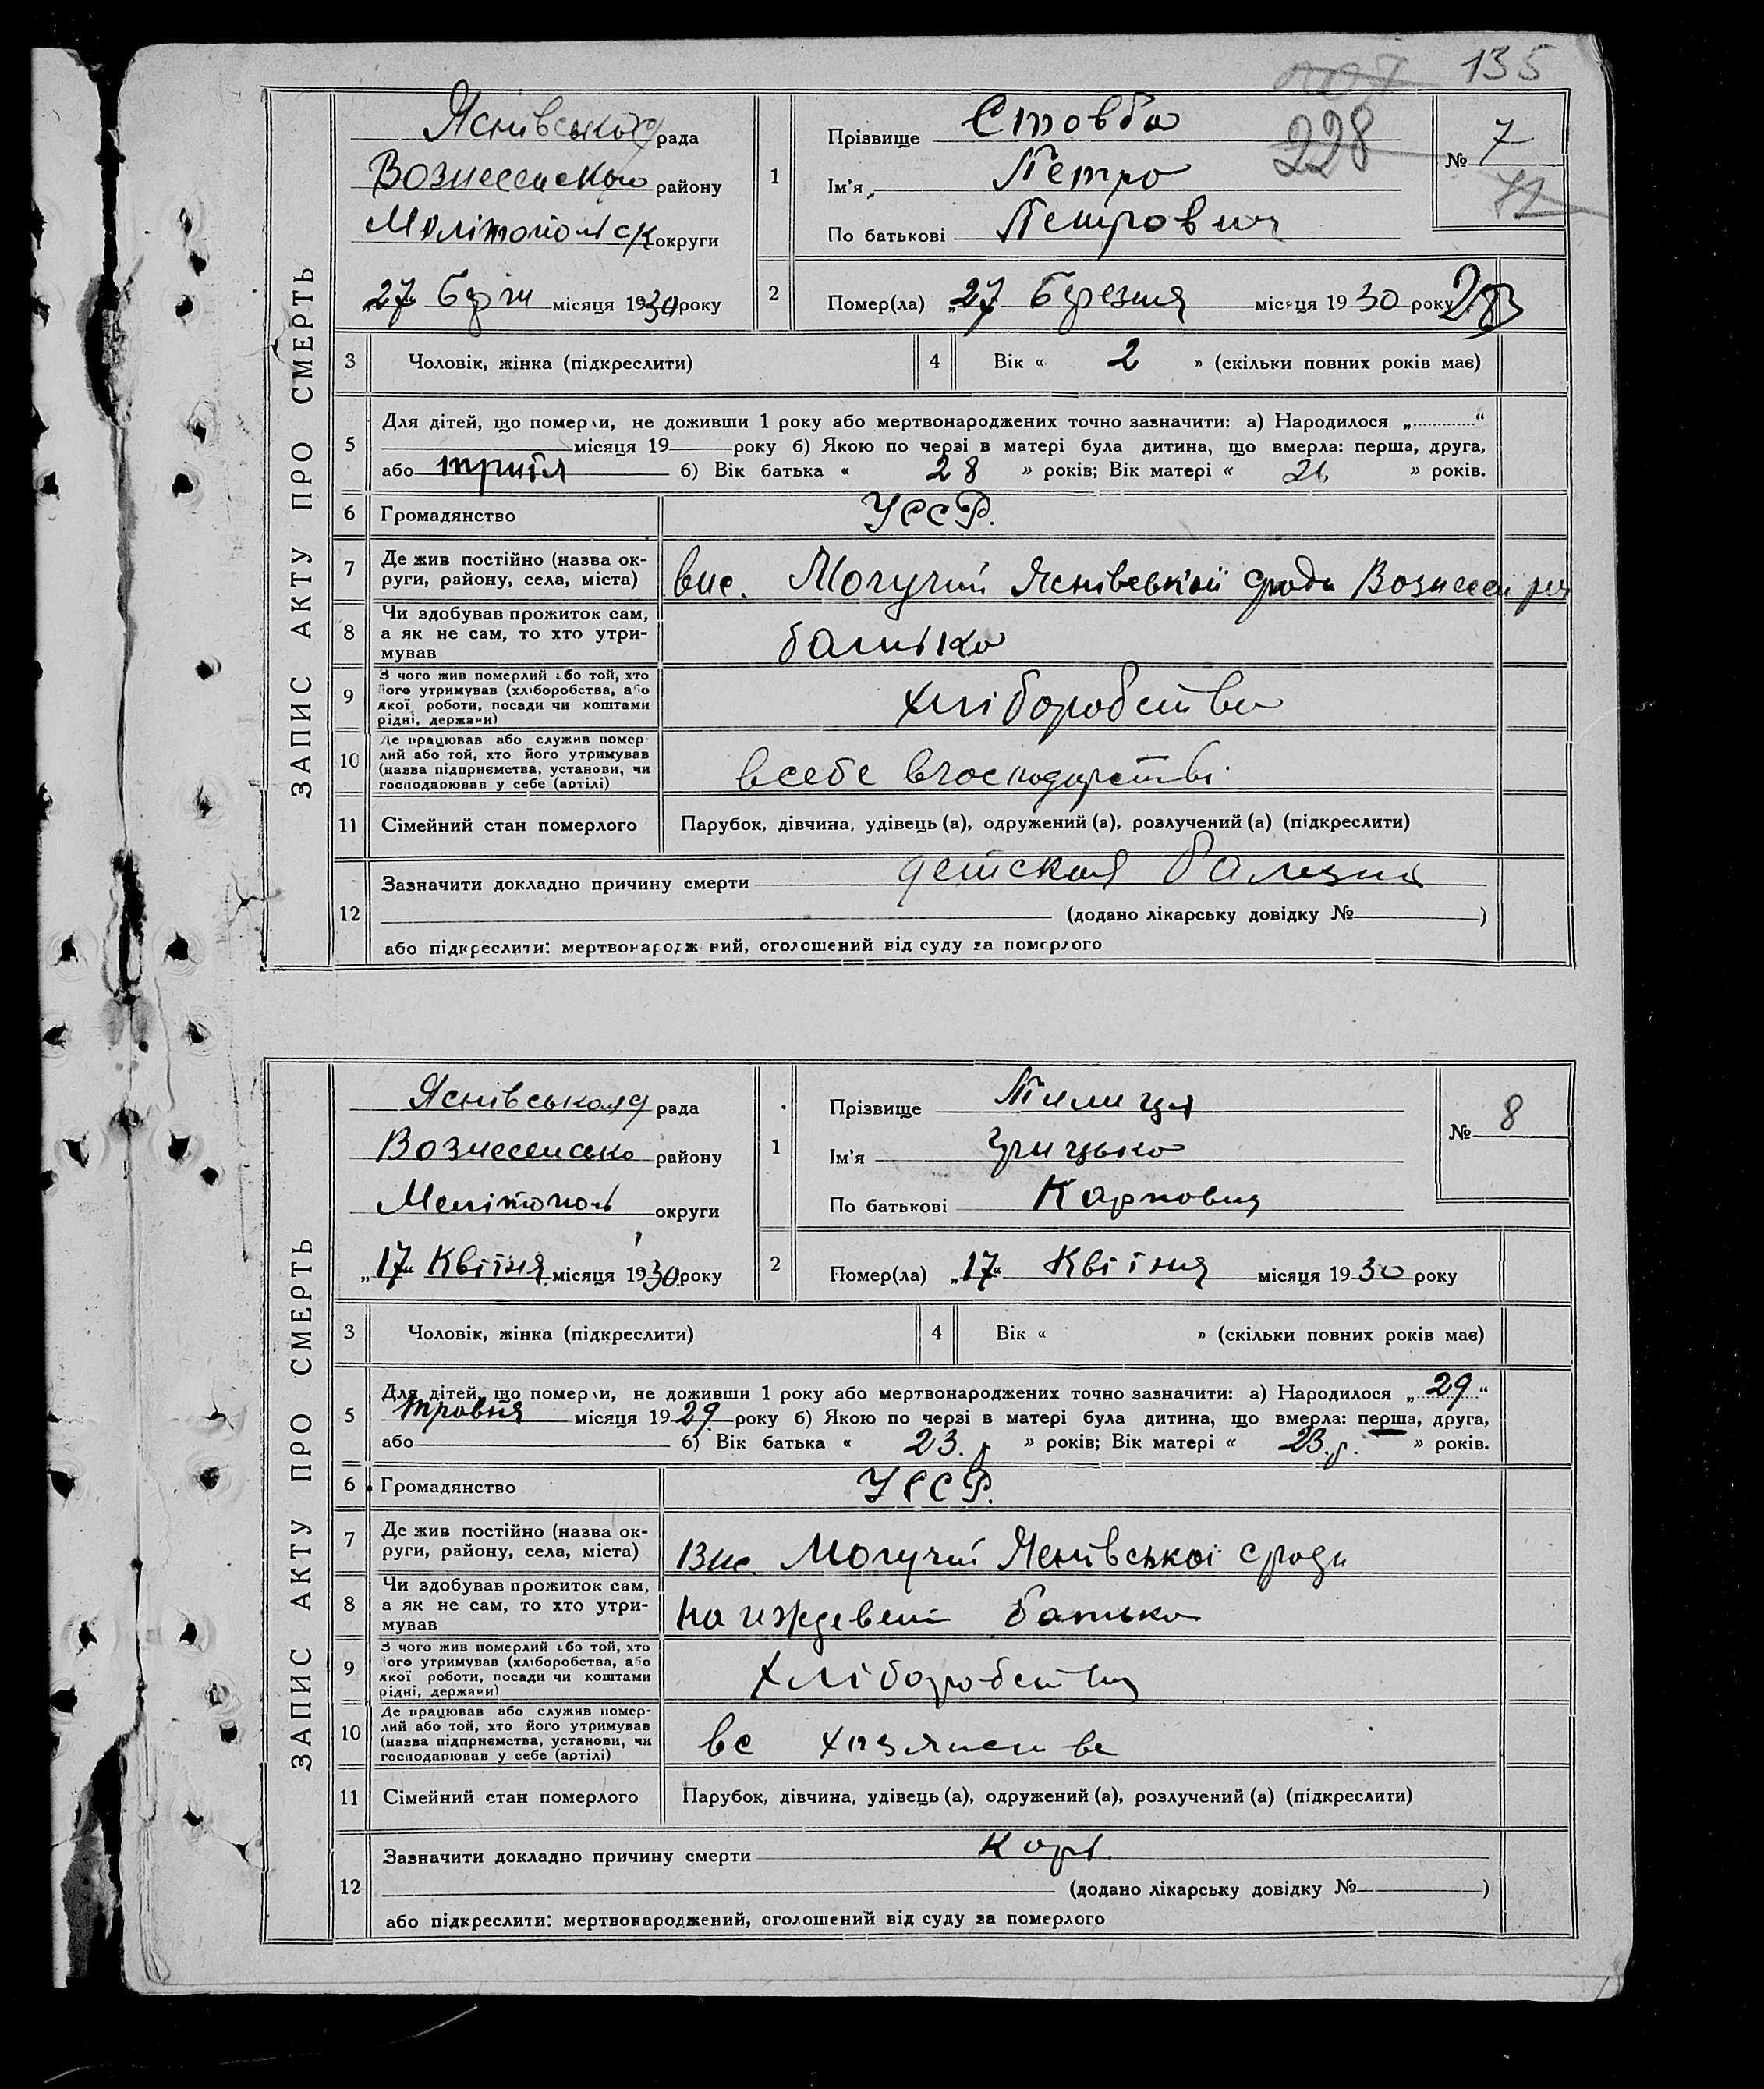 135
228
ЗАПИС АКТУ ПРО СМЕРТЬ
Яснівської рада
Вознесенського району
Мелітопольськ округи
„27“ Берзн місяця 1930 року
1
Прізвище Стовба
Ім'я Петро
По батькові Петрович
№ 7
72
2
Помер(ла) „27 Березня місяця 1930 року
3 Чоловік, жінка (підкреслити)
4 Вік « 2 » (скільки повних років має)
5 Для дітей, що померли, не доживши 1 року або мертвонароджених точно зазначити: а) Народилося „ “
місяця 19 року б) Якою по черзі в матері була дитина, що вмерла: перша, друга,
або трийтя б) Вік батька « 28 » років; Вік матері « 26 » років.
6 Громадянство УССР.
7 Де жив постійно (назва ок-
руги, району, села, міста) вис. Могучий Яснівської сради Вознесен рай
8 Чи здобував прожиток сам,
а як не сам, то хто утри-
мував
батько
9 З чого жив померлий або той, хто
його утримував (хліборобства, або
якої роботи, посади чи коштами
рідні, держави)
хліборобства
10 Де працював або служив помер-
лий або той, хто його утримував
(назва підприємства, установи, чи
господарював у себе (артілі)
всебе вгосподарстві
11 Сімейний стан померлого Парубок, дівчина, удівець (а), одружений (а), розлучений (а) (підкреслити)
12 Зазначити докладно причину смерти детская балезня
(додано лікарську довідку № )
або підкреслити: мертвонароджений, оголошений від суду за померлого
ЗАПИС АКТУ ПРО СМЕРТЬ
Яснівської рада
Вознесенсько району
Мелітополь округи
„17“ Квітня місяця 1930 року
1
Прізвище Телиця
Ім'я Грицько
По батькові Карпович
№ 8
2
Помер(ла) „17“ Квітня місяця 1930 року
3 Чоловік, жінка (підкреслити)
4 Вік « » (скільки повних років має)
5 Для дітей, що померли, не доживши 1 року або мертвонароджених точно зазначити: а) Народилося „29“
травня місяця 1929 року б) Якою по черзі в матері була дитина, що вмерла: перша, друга,
або б) Вік батька « 23. р » років; Вік матері « 23. р. » років.
6 Громадянство УССР.
7 Де жив постійно (назва ок-
руги, району, села, міста) Вис. Могучий Яснівської сради
8 Чи здобував прожиток сам,
а як не сам, то хто утри-
мував
на иждевені батька
9 З чого жив померлий або той, хто
його утримував (хліборобства, або
якої роботи, посади чи коштами
рідні, держави)
хліборобства
10 Де працював або служив помер-
лий або той, хто його утримував
(назва підприємства, установи, чи
господарював у себе (артілі)
вс хозяистве
11 Сімейний стан померлого Парубок, дівчина, удівець (а), одружений (а), розлучений (а) (підкреслити)
12 Зазначити докладно причину смерти Корь.
(додано лікарську довідку № )
або підкреслити: мертвонароджений, оголошений від суду за померлого